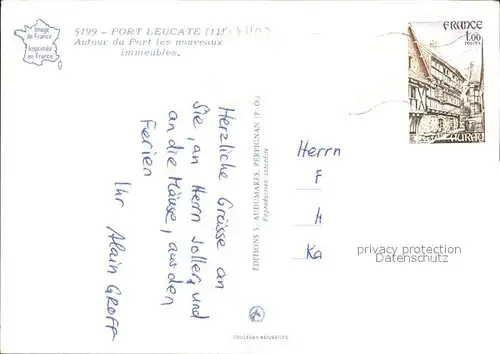 Image
de France
Imprimée
en France
5199 - PORT LEUCATE (11)
Autour du Port les nouveaux
immeubles.
FRANCE
1,00
POSTES
AURAY
Herzliche Grüsse an
Sie, an Herrn Joller, und
an die Mäuse, aus den
Ferien
Ihr Alain GROFF
EDITIONS S. AUDUMARES, PERPIGNAN (P.-O.)
Reproduction interdite
Herrn
F
H
Ka
privacy protection
Datenschutz
COULEURS NATURELLES